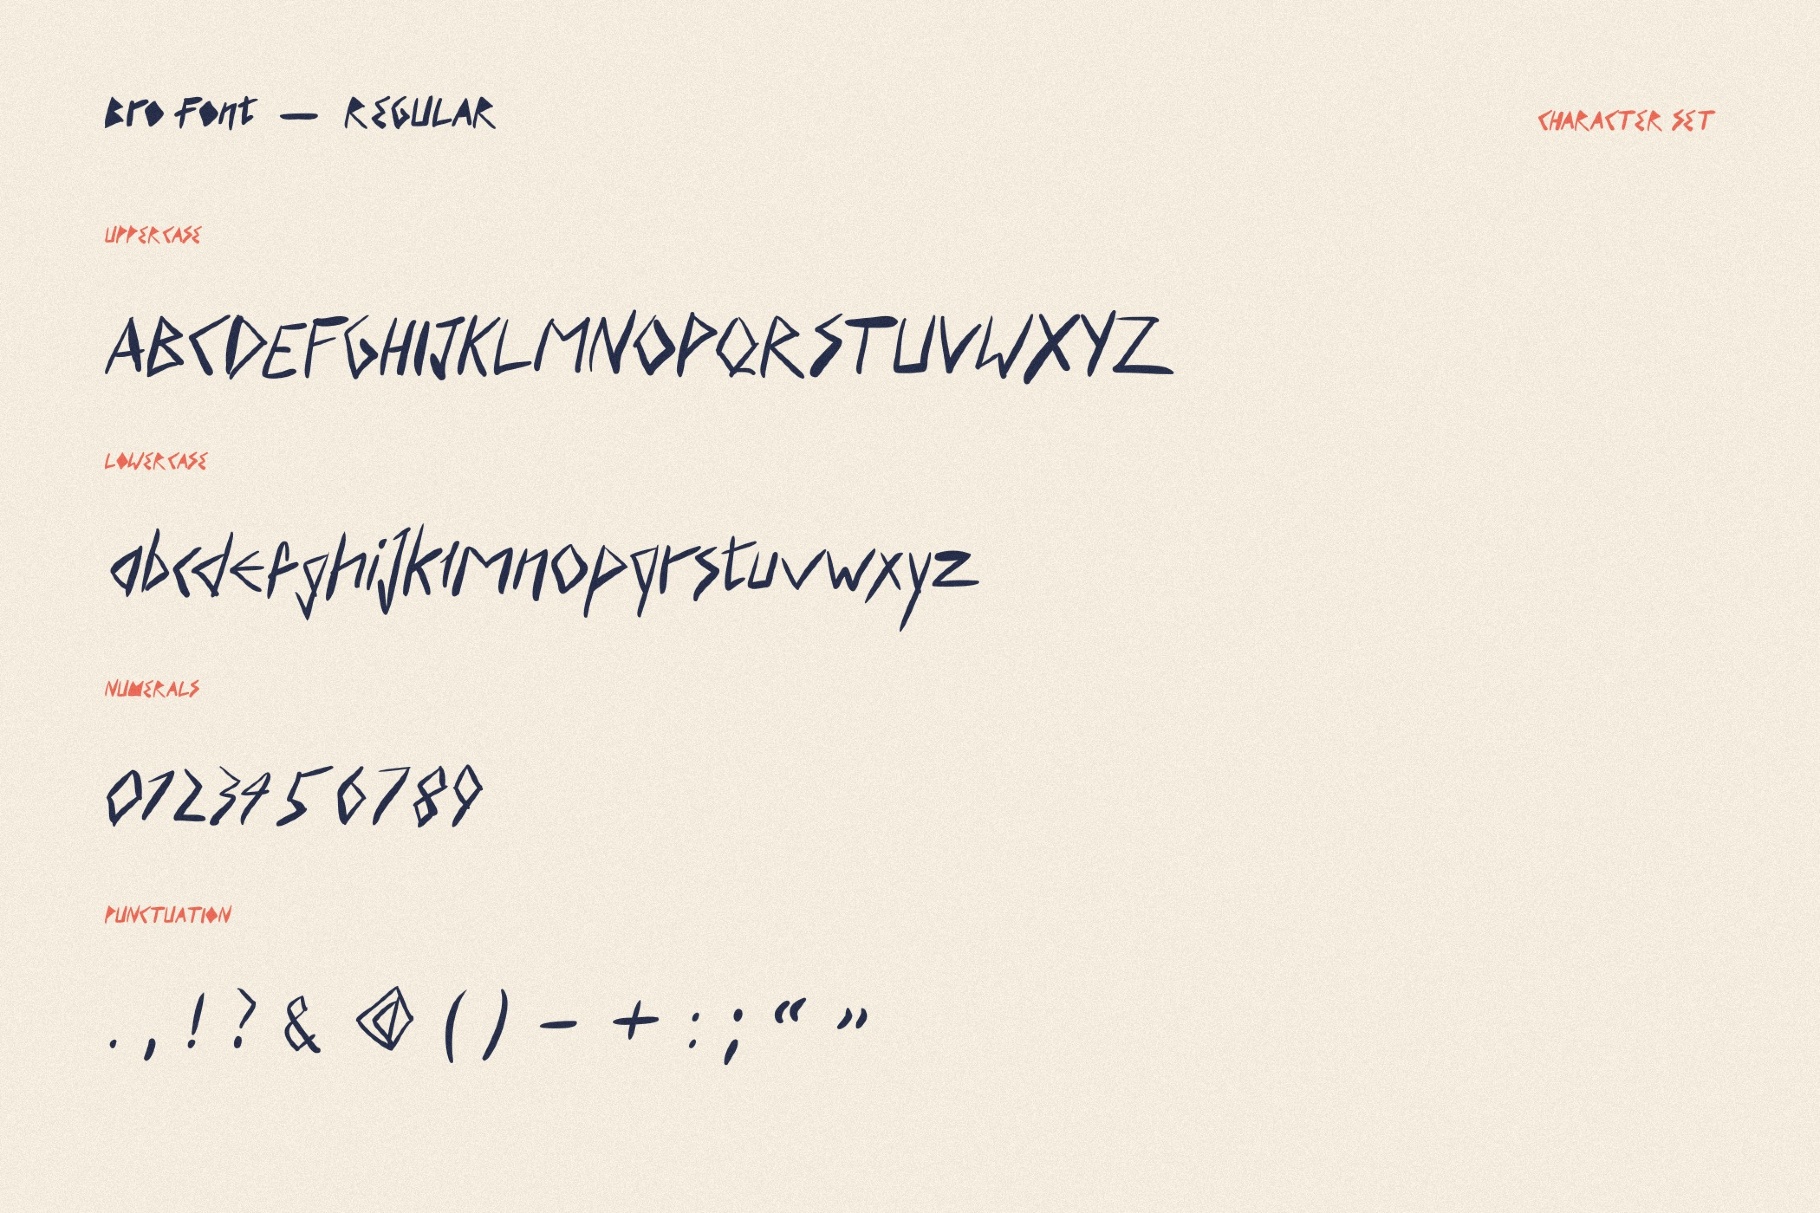 Bro Font — REGULAR
CHARACTER SET
UPPERCASE
ABCDEFGHIJKLMNOPQRSTUVWXYZ
LOWERCASE
abcdefghijklmnopqrstuvwxyz
NUMERALS
0123456789
PUNCTUATION
. , ! ? & @ ( ) – + : ; “ ”